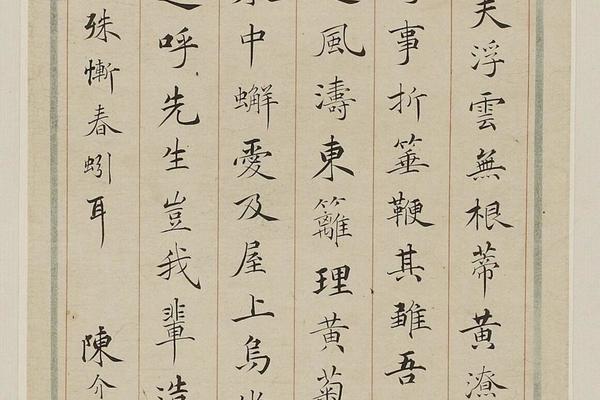 夫浮雲無根蒂黃潦
事折箠鞭其雛吾
風濤東籬理黃菊
中蠏愛及屋上烏
呼先生豈我輩造
殊慚春蚓耳 陳介